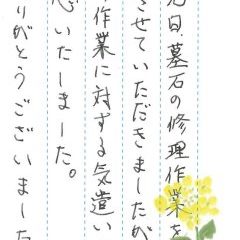 日墓石の修理作業を
させていただきましたが
作業に対する気遣い
心いたしました。
りがとうございました